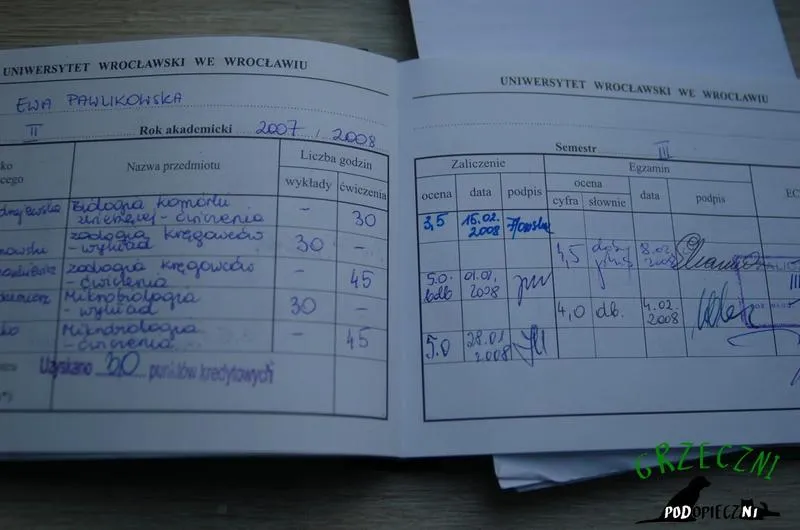 UNIWERSYTET WROCŁAWSKI WE WROCŁAWIU
EWA PAWLIKOWSKA
II Rok akademicki 2007/2008
Nazwa przedmiotu Liczba godzin
wykłady ćwiczenia
Biologia komórki
zwierzęcej - ćwiczenia - 30
zoologia kręgowców
- wykład 30 -
zoologia kręgowców
- ćwiczenia - 45
Mikrobiologia
- wykład 30 -
Mikrobiologia
- ćwiczenia - 45
Uzyskano 30 punktów kredytowych
UNIWERSYTET WROCŁAWSKI WE WROCŁAWIU
Semestr III
Zaliczenie Egzamin
ocena data podpis ocena data podpis
cyfra słownie
3,5 15.02.
2008
4,5 dobry
plus 8.02.
2008
5.0
bdb 01.02.
2008
4,0 db. 4.02.
2008
5.0 28.01
2008
III
GRZECZNI
PODOPIECZNI